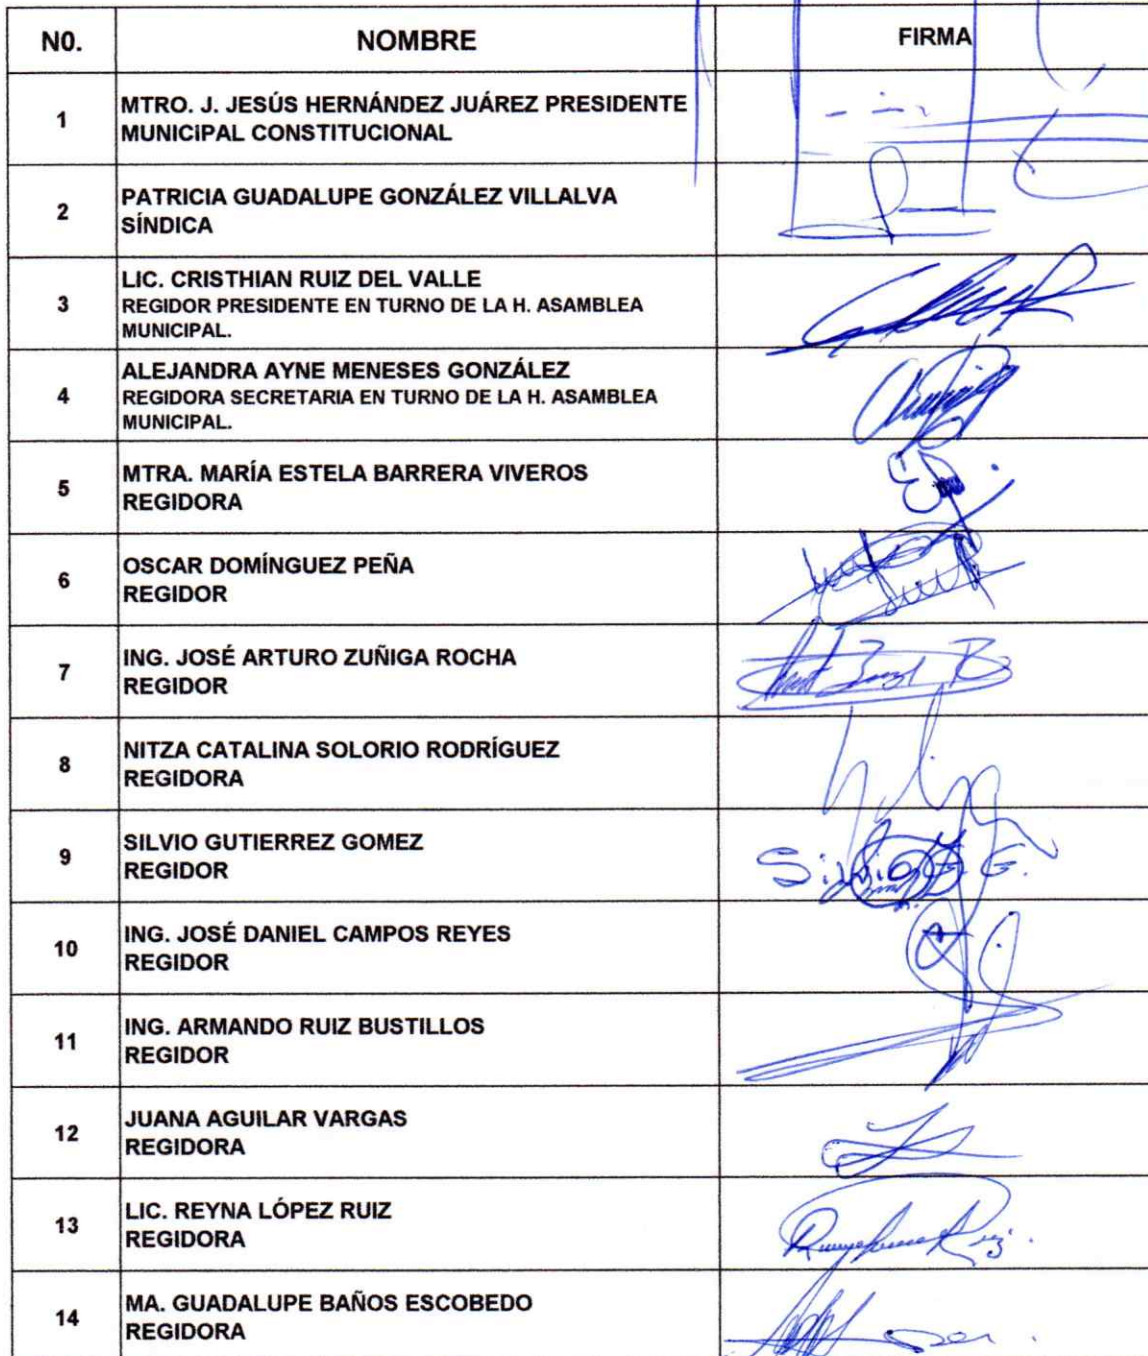 N0. NOMBRE FIRMA
1 MTRO. J. JESÚS HERNÁNDEZ JUÁREZ PRESIDENTE
MUNICIPAL CONSTITUCIONAL
2 PATRICIA GUADALUPE GONZÁLEZ VILLALVA
SÍNDICA
3 LIC. CRISTHIAN RUIZ DEL VALLE
REGIDOR PRESIDENTE EN TURNO DE LA H. ASAMBLEA
MUNICIPAL.
4 ALEJANDRA AYNE MENESES GONZÁLEZ
REGIDORA SECRETARIA EN TURNO DE LA H. ASAMBLEA
MUNICIPAL.
5 MTRA. MARÍA ESTELA BARRERA VIVEROS
REGIDORA
6 OSCAR DOMÍNGUEZ PEÑA
REGIDOR
7 ING. JOSÉ ARTURO ZUÑIGA ROCHA
REGIDOR
8 NITZA CATALINA SOLORIO RODRÍGUEZ
REGIDORA
9 SILVIO GUTIERREZ GOMEZ
REGIDOR
Silvio G. G.
10 ING. JOSÉ DANIEL CAMPOS REYES
REGIDOR
11 ING. ARMANDO RUIZ BUSTILLOS
REGIDOR
12 JUANA AGUILAR VARGAS
REGIDORA
13 LIC. REYNA LÓPEZ RUIZ
REGIDORA
14 MA. GUADALUPE BAÑOS ESCOBEDO
REGIDORA